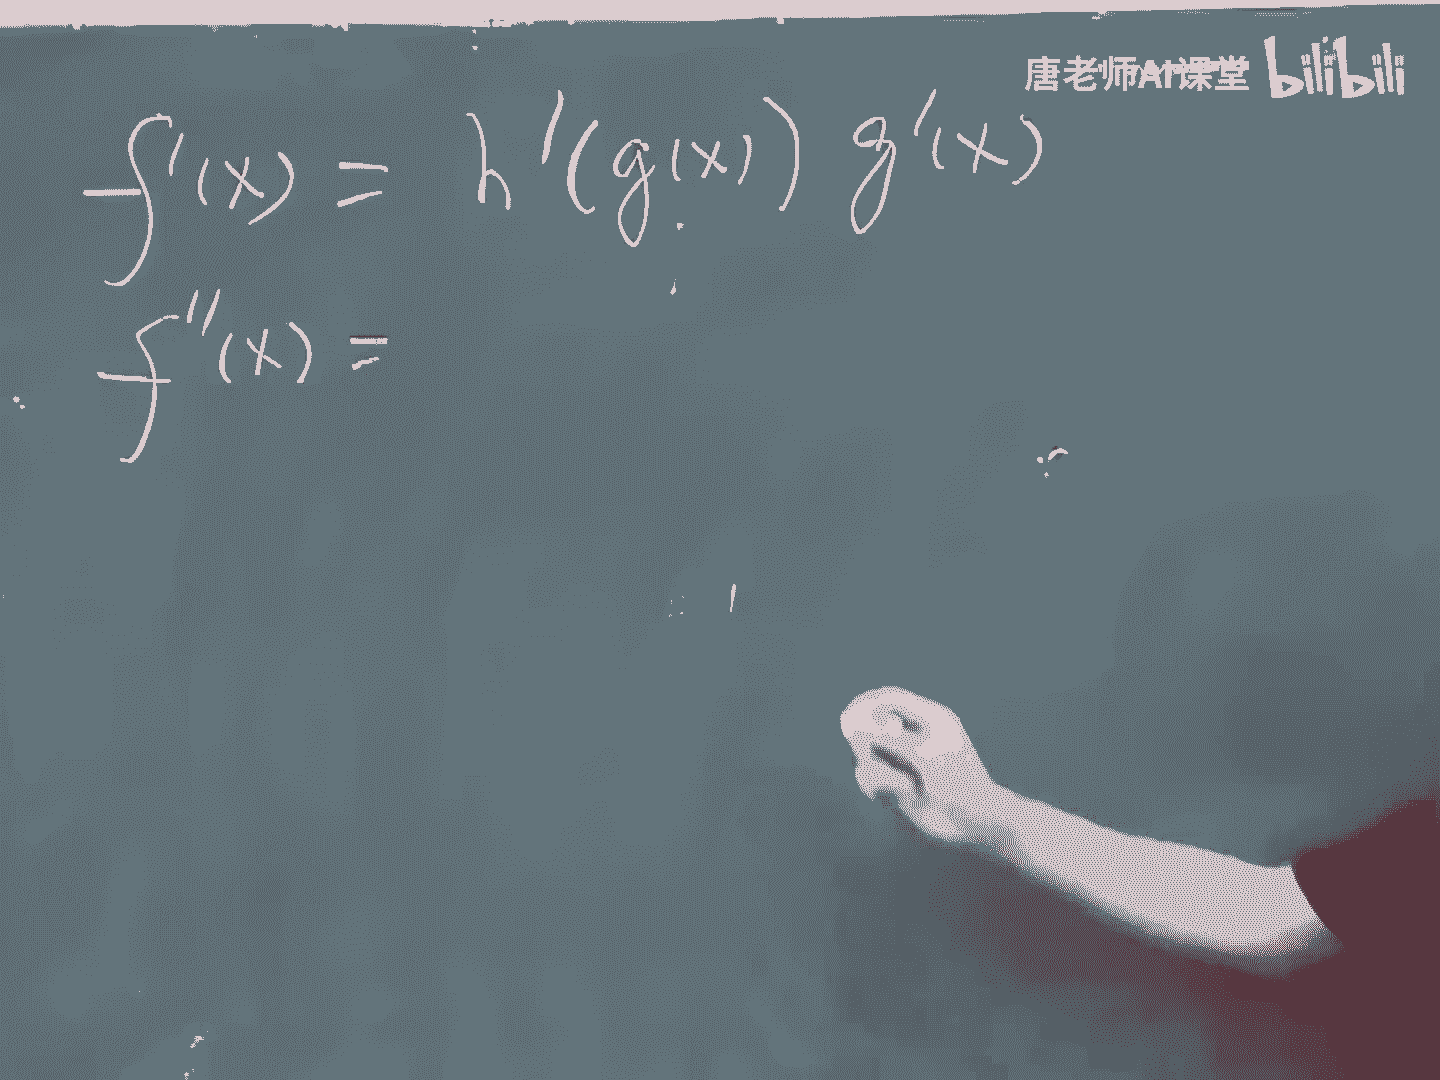 唐老师AI课堂 bilibili
f'(x) = h'(g(x)) g'(x)
f''(x) =